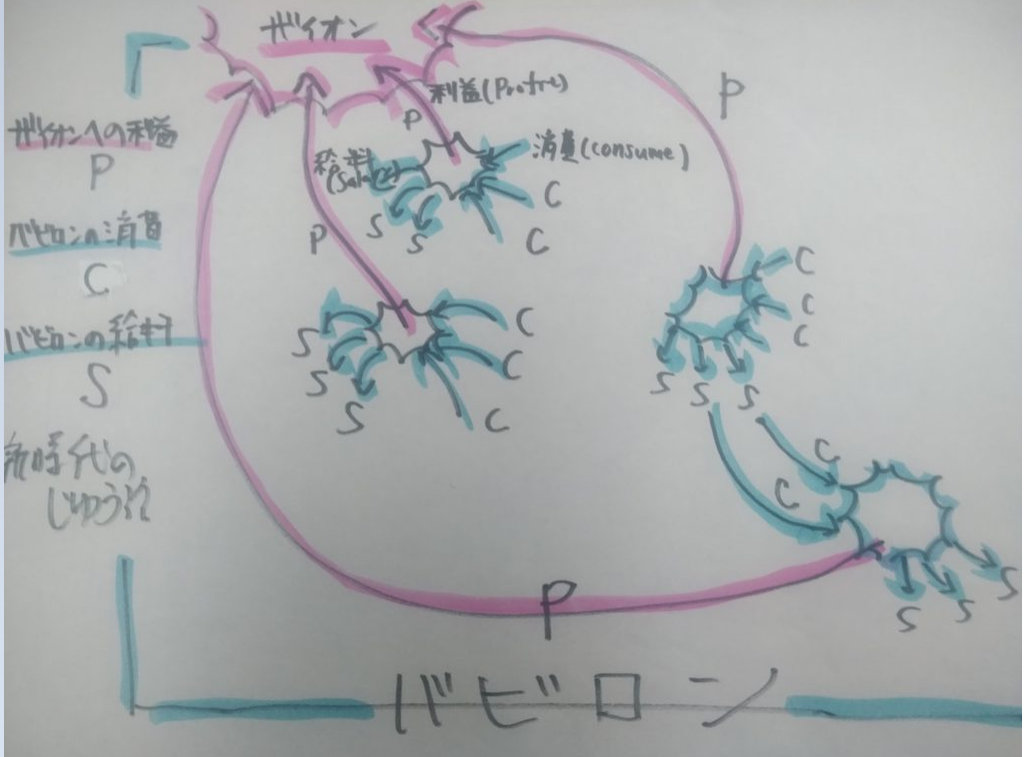 ザイオン
利益(Profit)
P
P
消費(consume)
給料
(Salary)
C
C
S
S
ザイオンへの利益
P
バビロンの消費
C
バビロンの給料
S
新時代の
P
S
S
S
C
C
C
C
C
C
S
S
S
C
C
S
S
S
P
バビロン